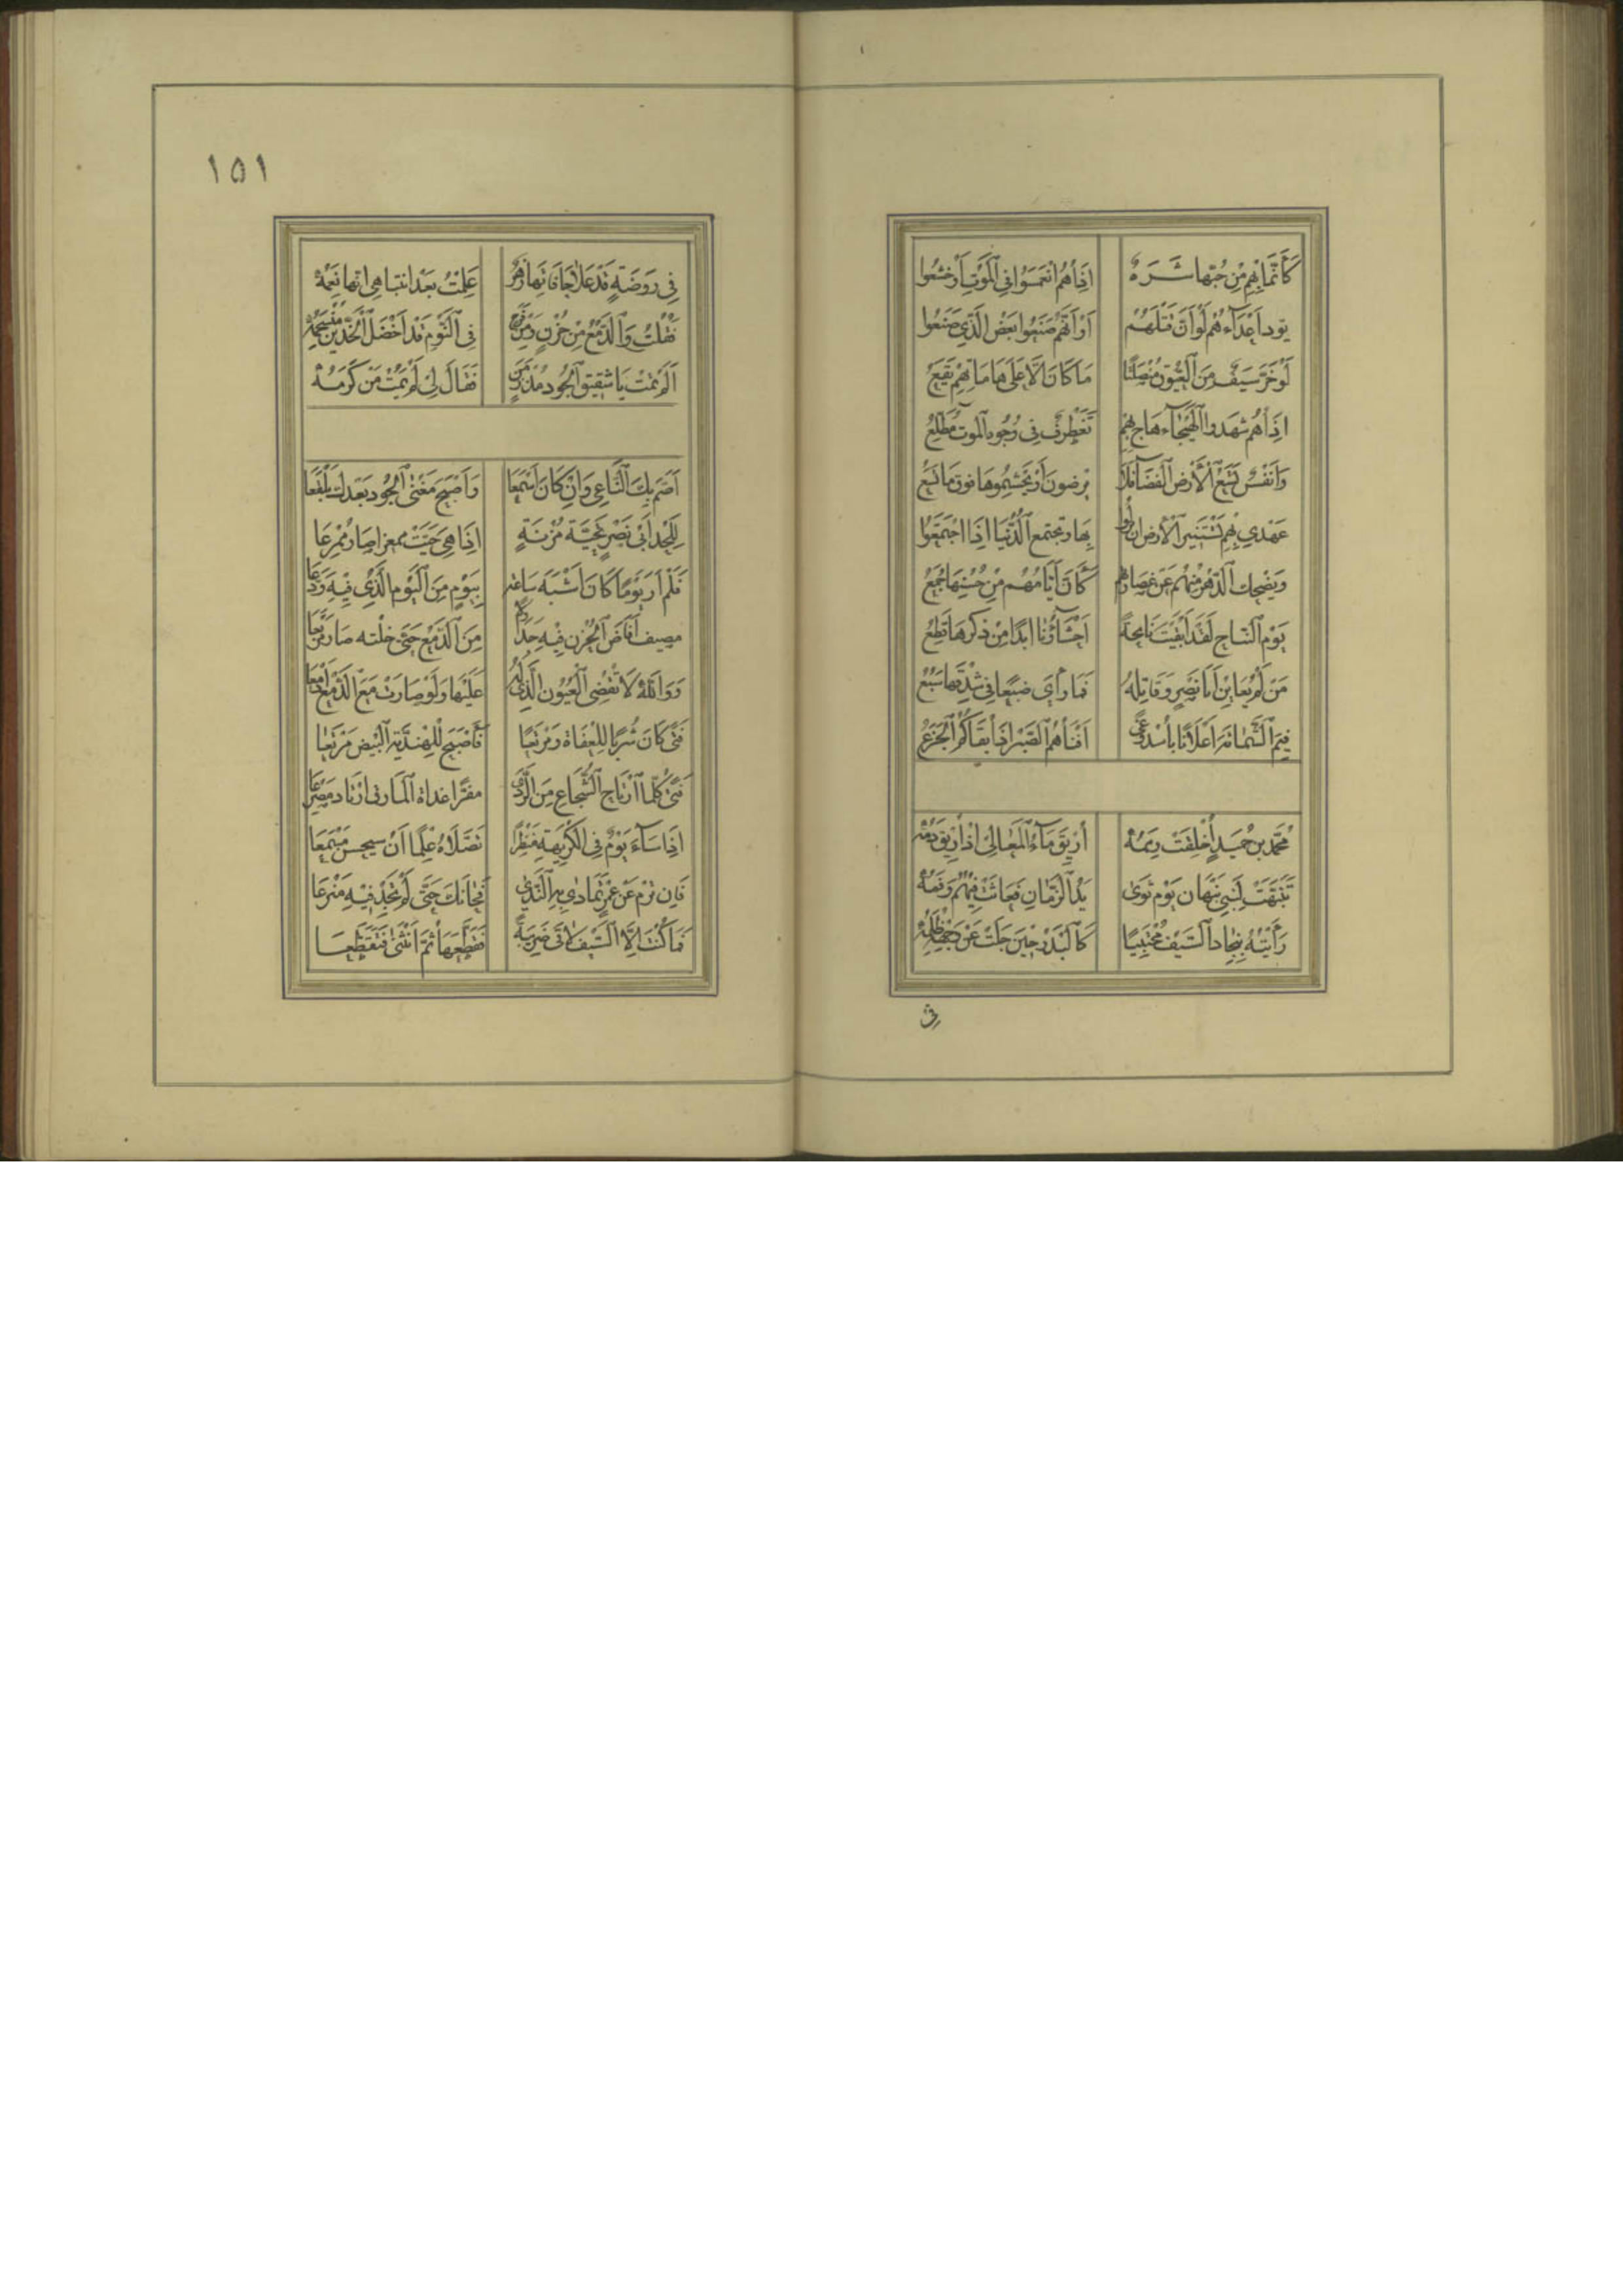 كَأَنَّمَا بِهِمِ مِنْ حُبِّهَا شَرَهٌ اِذَا هُمُ انْغَمَسُوا فِي الْمَوْتِ أَوْ خَشَعُوا
يود اَعْدَآءهُمْ لَوْ اَنَّ قَتْلَهُمْ اَوْ اَنَّهُمْ صَنَعُوا بَعْضَ الَّذِي صَنَعُوا
لَوْ خَرَّ سَيْفٌ مِنَ الْعَيُّوقِ مُنْصَلِتًا مَا كَانَ اِلَّا عَلَى هَامَاتِهِمْ يَقَعُ
اِذَا هُمُ شَهَدوا الْهَيْجَآءَ هَاجَ بِهِمْ تَغَطْرُفٌ فِي وُجُوهِ الموت مُطَّلِعُ
وَاَنْفُسٌ تَسَعُ الْأَرْضَ الْفَضَآءَ فَلَا يرضون أَوْ يُجْشِمُوهَا فوق مَا تَسَعُ
عَهْدِي بِهِمْ تَسْتَنِيرُ الْأَرْضُ ان نزلوا بِهَا وتجتمع الدُّنْيَا اِذَا اجْتَمَعُوا
وَيَضْحَك الدَّهْرُ مِنْهُمْ عَنْ غَطَارِفَةٍ كَأَنَّ اَيَّامَهُمْ مِنْ حُسْنِهَا جُمَعُ
يَوْمَ النِّبَاجِ لَقَدْ اَبْقَيْتَ نَابِجَةً اَحْشَآؤُنَا ابدًا مِنْ ذِكْرِهَا قِطَعُ
مَنْ لَمْ يُعَايِنْ اَبَا نَصْرٍ وَقَاتِلَهُ فَمَا رَأَى ضَبُعًا فِي شِدْقِهَا سَبُعُ
فِيمَ الشَّمَاتَةُ اِعْلَانًا بِأُسْدِ وَغًى اَفْنَاهُمُ الصَّبْرُ اِذْ أَبْقَاكُمُ الْجَزَعُ
مُحَمَّد بن حُمَيدٍ أُخْلِقَتْ رِمَمُهْ أُرِيقَ مَآءُ الْمَعَالِي اِذْ أُرِيقَ دَمُهْ
تَنَبَّهَتْ لِبَنِي نَبْهَان يَوْم ثَوَى يَدُ الزَّمَانِ فَعَاثَتْ فِيْهُمْ وَفَمُهْ
رَأَيْتُهُ بِنِجَادِ السَّيْفِ مُحْتَبِيًا كَالْبَدْرِ حِينَ جَلَتْ عَنْ وَجْهِهِ ظُلَمُهْ
فى
١٥١
فِي رَوْضَةٍ قَدْ عَلَا حَافَاتِهَا زَهَرٌ عَلِمْتُ بَعْدَ انتباهي انها نِعَمُهْ
فَقُلْتُ وَالدَّمْعُ مِنْ حُزْنٍ وَمِنْ فِي النَّوْمِ قَدْ اَخْضَلَ الْخَدَّيْنِ مُنْسَجِمُهْ
اَلَمْ تَمُتْ يَا شَقِيقَ الْجُودِ مُذْ زَمَنٍ فَقَالَ لِي لَمْ يَمُتْ مَنْ لَمْ يَمُتْ كَرَمُهْ
اَصَمَّ بِكَ النَّاعِي وَاِنْ كَانَ اَسْمَعَا وَاَصْبَحَ مَغْنَى الْجُود بَعْدَكَ بَلْقَعَا
لِلَحْدِ اَبِي نَصْرٍ تَحِيَّةُ مُزْنَةٍ اِذَا هِيَ حَيَّتْ ممعرا صَارَ مُمْرِعَا
فَلَمْ أَرَ يَوْمًا كَانَ اَشْبَهَ سَاعَة بِيَوْمٍ مِنَ الْيَوْمِ الَّذِي فِيهِ وَدَّعَا
مصيف أَفَاضَ الْحُزْن فِيهِ جَدَاوِلًا مِنَ الدَّمْعِ حَتَّى خِلْته صَارَ مَرْبَعَا
وَوَاللَّهِ لَا تَقْضِي الْعُيُونُ الَّذِي لَهُ عَلَيْهَا وَلَوْ صَارَتْ مَعَ الدَّمْعِ اَدْمُعَا
فَتًى كَانَ شُرْبًا لِلْعُفَاةِ وَمَرْتَعًا فَأَصْبَحَ لِلْهِنْدِيَّةِ الْبِيضِ مَرْتَعَا
فَتًى كُلَّمَا ارْتَاعَ الشُّجَاعُ مِنَ الرَّدَى مفرًّا غداة الْمَازِقِ ارْتَادَ مَصْرَعَا
اِذَا سَآءَ يَوْمٌ فِي الْكَرِيهَةِ مَنْظَرًا تَصَلَّاهُ عِلْمًا اَنْ سيحسن مَسْمَعَا
فَإِن تَرْم عَنْ عُمْرٍ تَمَادَى بِهِ النَّدَى فَخَانَكَ حَتَّى لَمْ تَجِدْ فِيْهِ مَنْزِعَا
فَمَا كُنْتَ اِلَّا السَّيْفَ لَاقَى ضَرِيبَةً فَقَطَّعَهَا ثُمَّ انْثَنَى فَتَقَطَّعَا